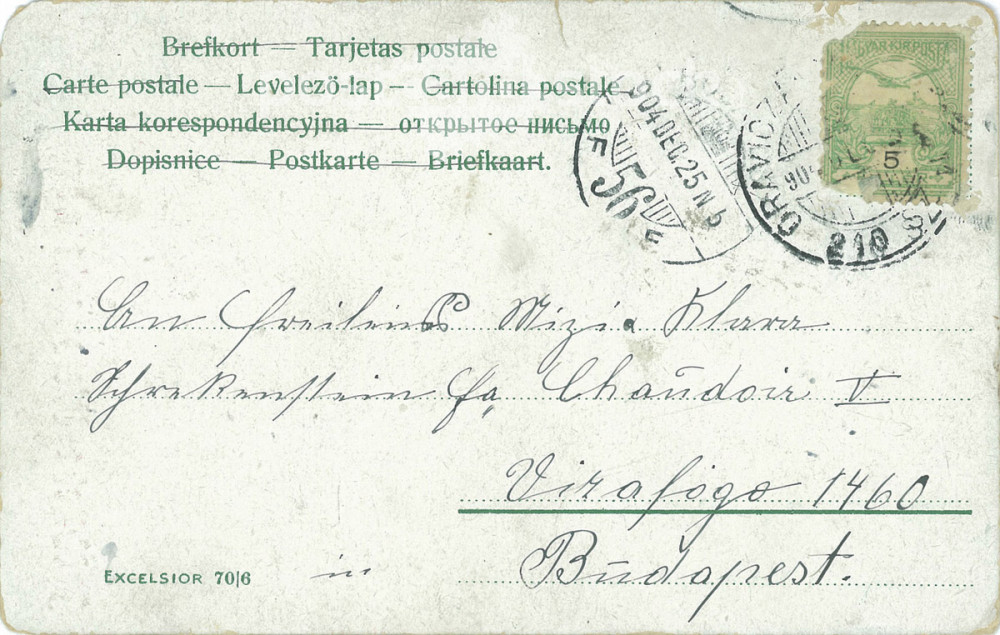 Brefkort — Tarjetas postale
Carte postale — Levelező-lap — Cartolina postale
Karta korespondencyjna — открытое письмо
Dopisnice — Postkarte — Briefkaart.
MAGYAR KIR. POSTA
5
904 DEC. 25 N 5
F 56 E
ORAVICZ
210
An Freileins Mizi Klara
Schrekenstein fa Chaudoir V
Virafogo 1460
in Budapest.
EXCELSIOR 70|6